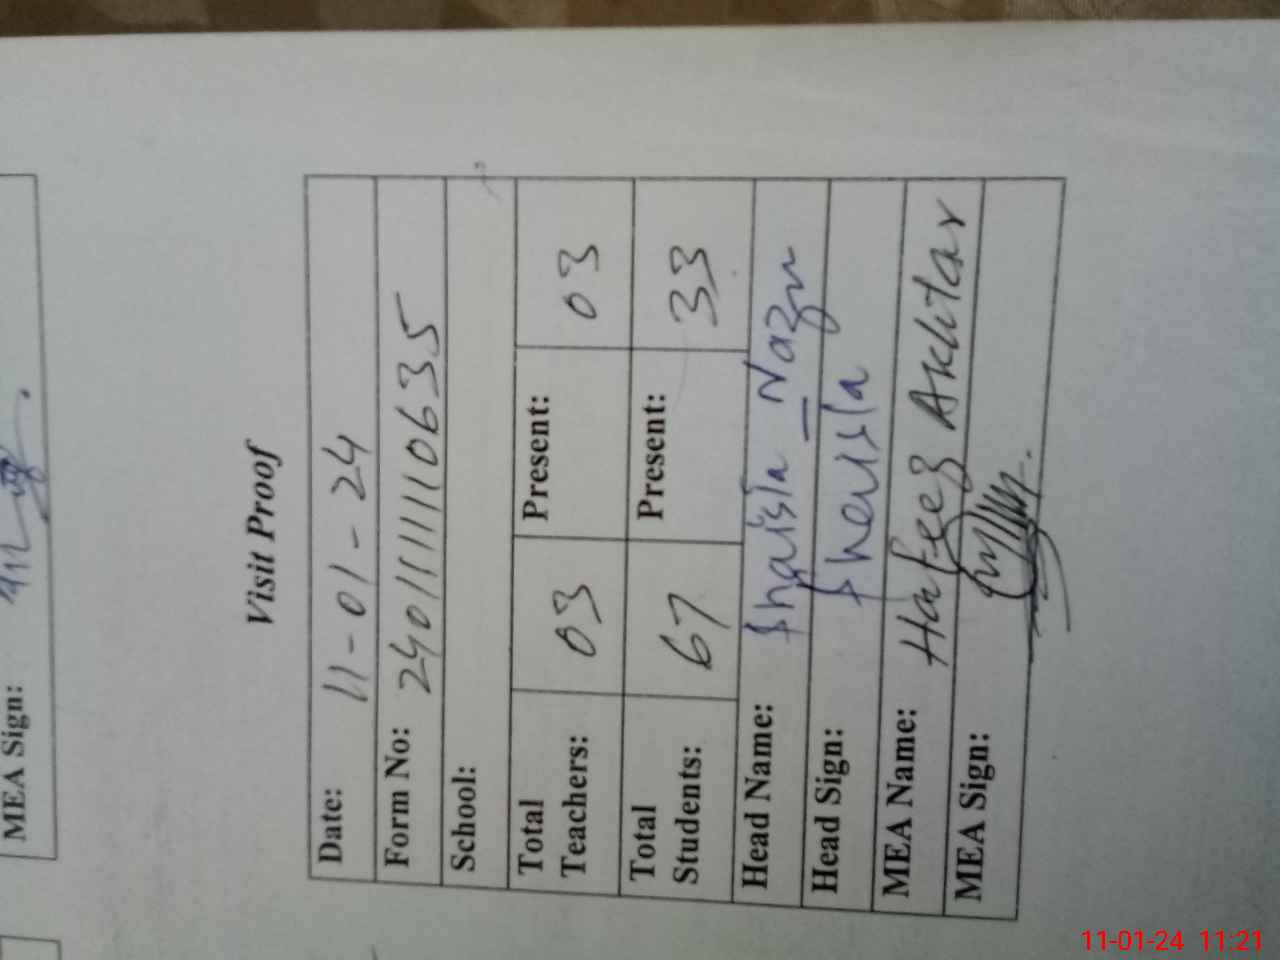 MEA Sign:
Visit Proof
Date: 11-01-24
Form No: 24011111110635
School:
Total Teachers: 03 Present: 03
Total Students: 67 Present: 33
Head Name: Shaista Naz
Head Sign: Shaista
MEA Name: Hafeez Akhtar
MEA Sign:
11-01-24 11:21